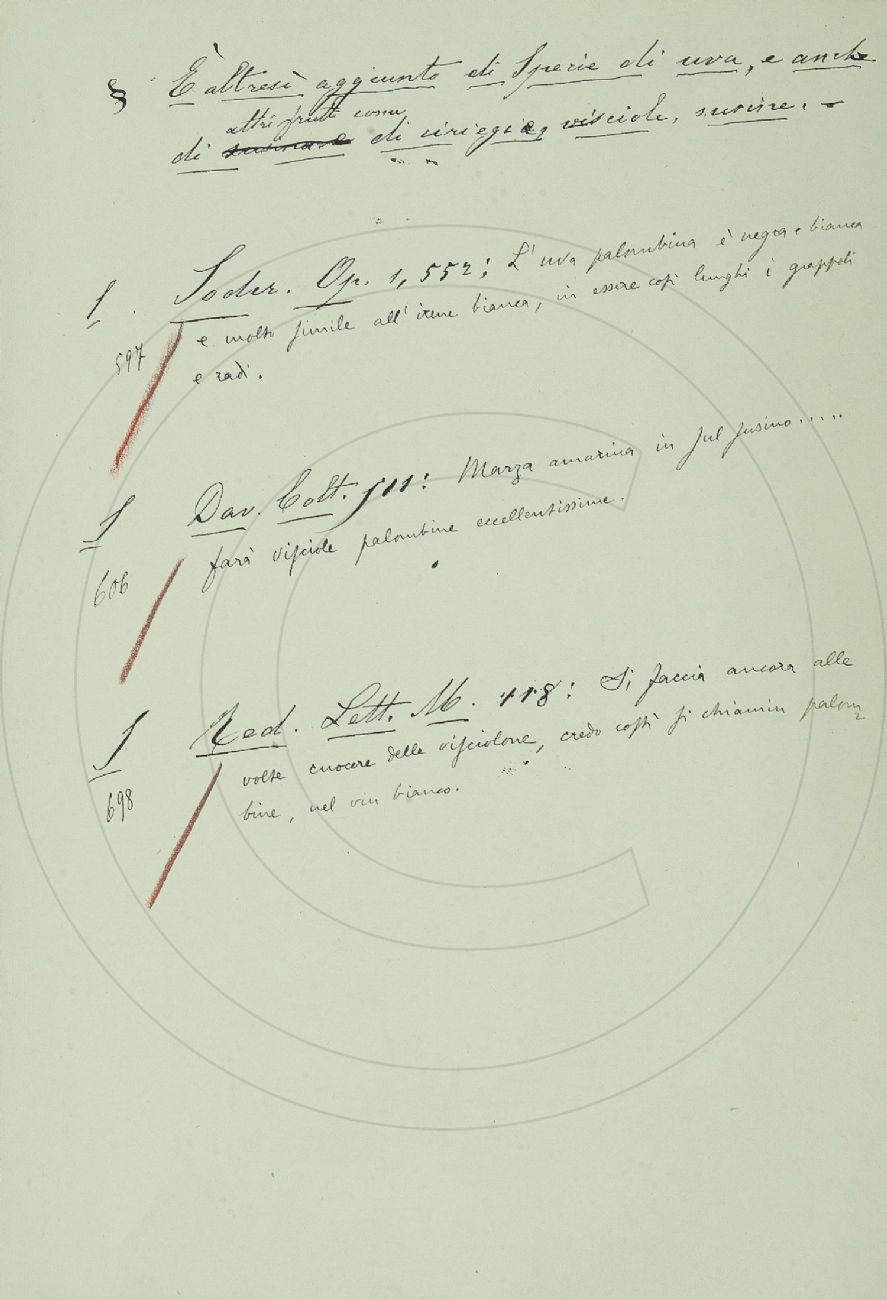 § È altresì aggiunto di Specie di uva, e anche
altri frutti come
di susina e di ciriegie, visciole, susine. –
S. Soder. Op. 1, 552: L' uva palombina è negra e bianca
597 e molto simile all' itrme bianca, in essere così lunghi i grappoli
e radi.
S Dav. Colt. 511: Marza amarina in sul susino.....
606 farà visciole palombine eccellentissime.
S Red. Lett. M. 118: Si faccia ancora alle
698 volte cuocere delle visciolone, credo costì si chiamin palom-
bine, nel vin bianco.